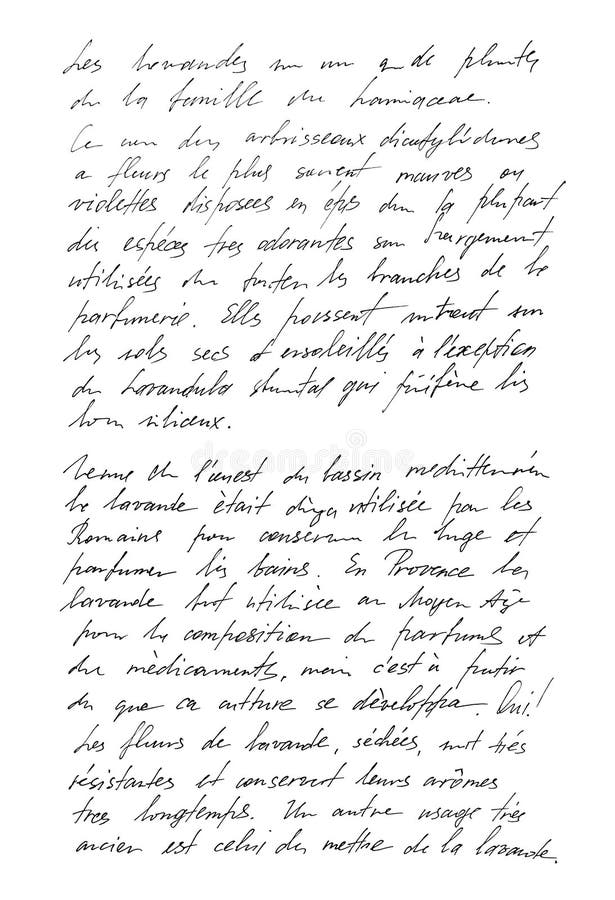 Les lavandes un de plantes
de la famille des Lamiaceae.
Ce arbrisseaux dicotylédones
a fleurs le plus souvent mauves ou
violettes disposées en épis la plupart
des espèces très odorantes largement
utilisées les branches de la
parfumerie. Elles poussent surtout sur
les sols secs et ensoleillés à l'exception
du Lavandula qui préfère les
siliceux.
Venue de l'ouest du bassin
la lavande était utilisée par les
Romains pour conserver le linge et
parfumer les bains. En Provence la
lavande fut utilisée au Moyen Age
pour la composition de parfums et
de mèdicaments, mais c'est à partir
du que sa culture se dèveloppa. Oui!
Les fleurs de lavande, séchées, sont très
résistantes et conservent leurs arômes
tres longtemps. Un autre usage très
ancien est celui de mettre de la lavande.
dreamstime